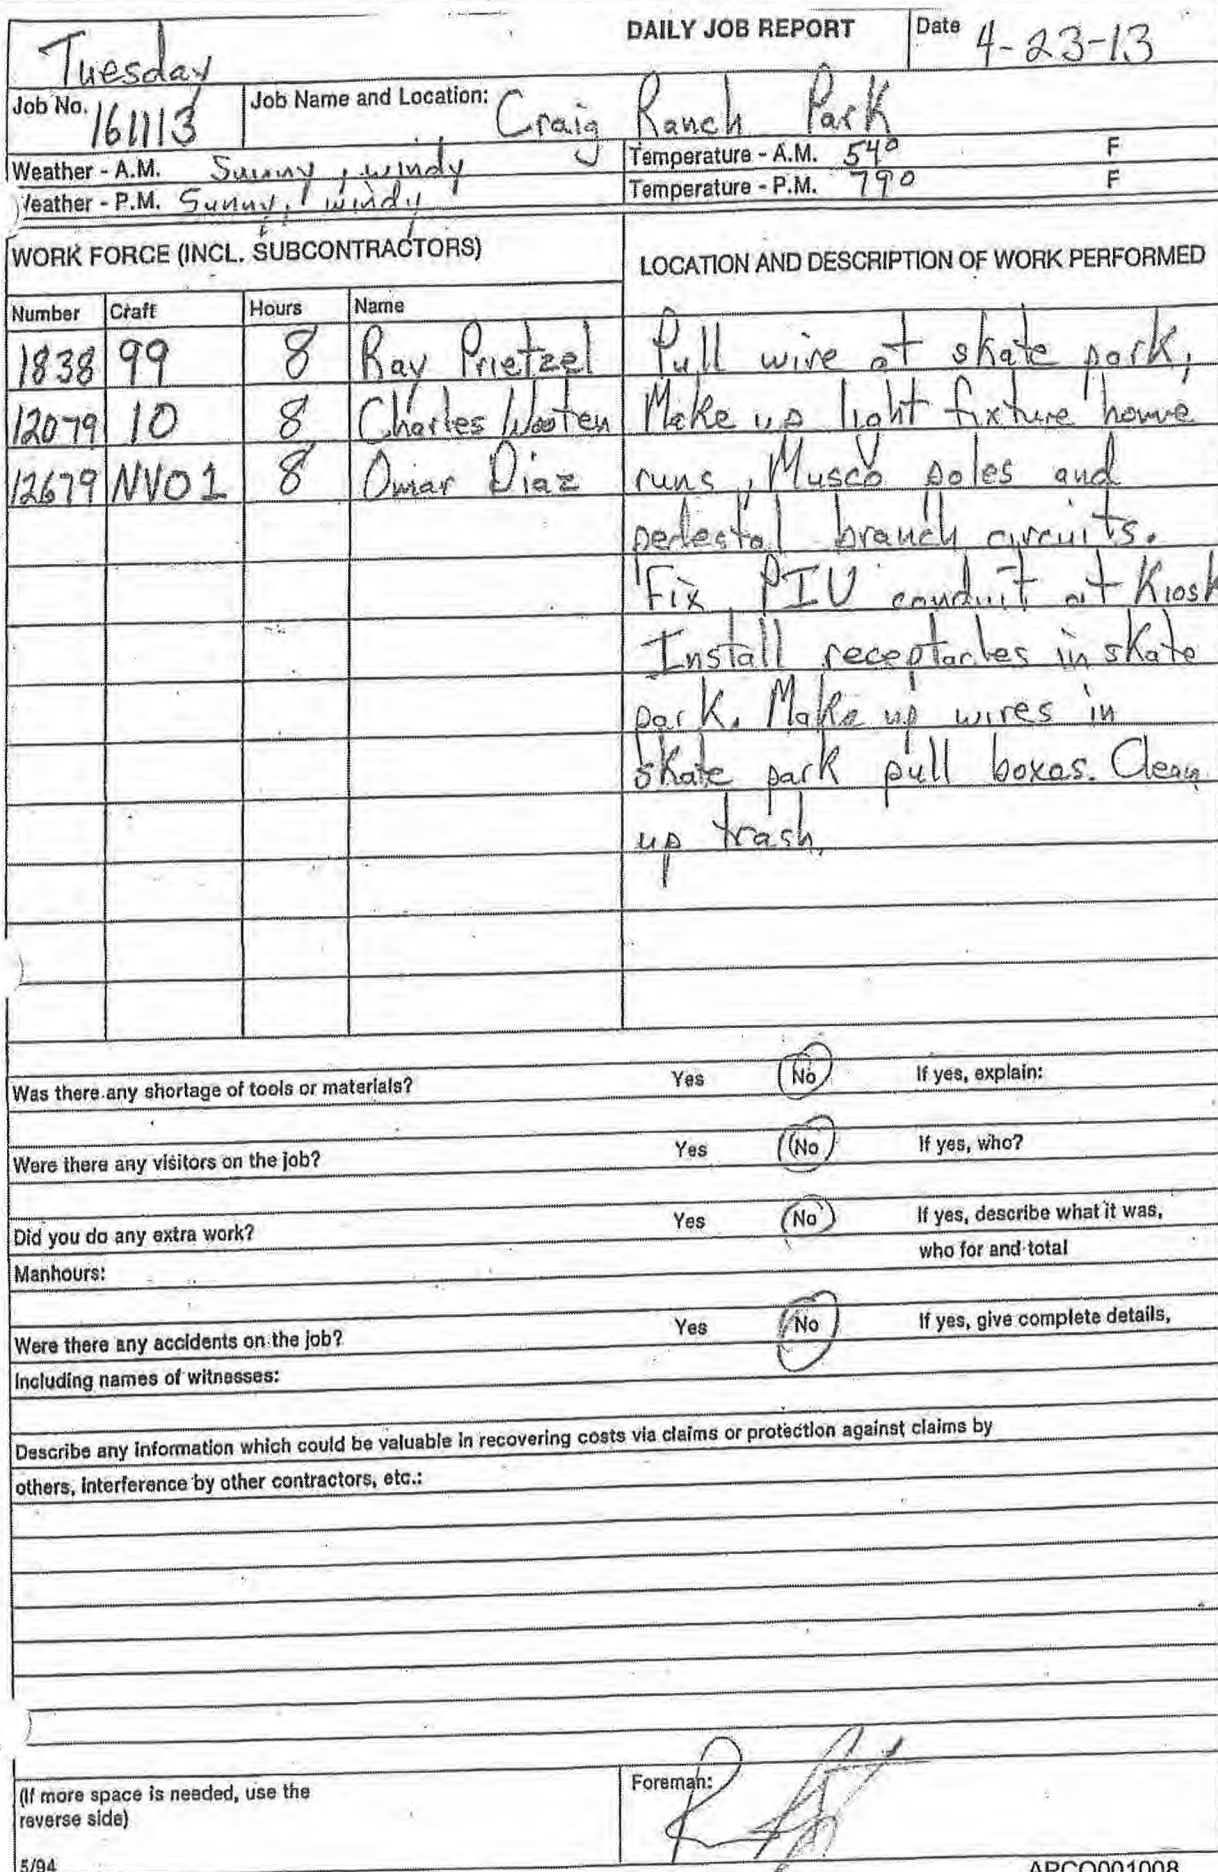 Tuesday
DAILY JOB REPORT
Date 4-23-13
Job No. 161113
Job Name and Location: Craig Ranch Park
Weather - A.M. Sunny, windy
Temperature - A.M. 54° F
Weather - P.M. Sunny, windy
Temperature - P.M. 79° F
WORK FORCE (INCL. SUBCONTRACTORS)
LOCATION AND DESCRIPTION OF WORK PERFORMED
Number Craft Hours Name
1838 99 8 Ray Prietzel Pull wire at skate park,
12079 10 8 Charles Wooten Make up light fixture home
12679 NV01 8 Omar Diaz runs, Musco poles and
pedestal branch circuits.
Fix PIV conduit at Kiosk
Install receptacles in skate
park. Make up wires in
skate park pull boxes. Clean
up trash.
Was there any shortage of tools or materials? Yes No If yes, explain:
Were there any visitors on the job? Yes No If yes, who?
Did you do any extra work? Yes No If yes, describe what it was,
who for and total
Manhours:
Were there any accidents on the job? Yes No If yes, give complete details,
Including names of witnesses:
Describe any information which could be valuable in recovering costs via claims or protection against claims by
others, interference by other contractors, etc.:
(If more space is needed, use the
reverse side)
Foreman:
5/94
APCO001008